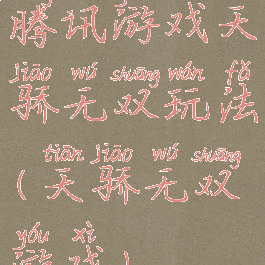 腾讯游戏天
jiāo wú shuāng wán fǎ
骄无双玩法
tiān jiāo wú shuāng
(天骄无双
yóu xì
游戏)